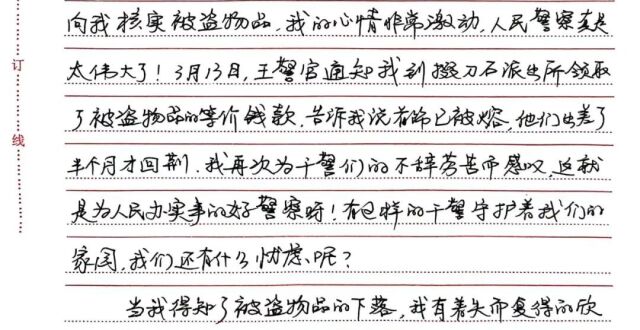 向我核实被盗物品，我的心情非常激动，人民警察真是
太伟大了！3月13日，王警官通知我到掇刀石派出所领取
了被盗物品的等价钱款，告诉我说首饰已被熔，他们出差了
半个月才回荆，我再次为干警们的不辞劳苦而感叹，这就
是为人民办实事的好警察呀！有这样的干警守护着我们的
家园，我们还有什么忧虑呢？
当我得知了被盗物品的下落，我有着失而复得的欣
订
线